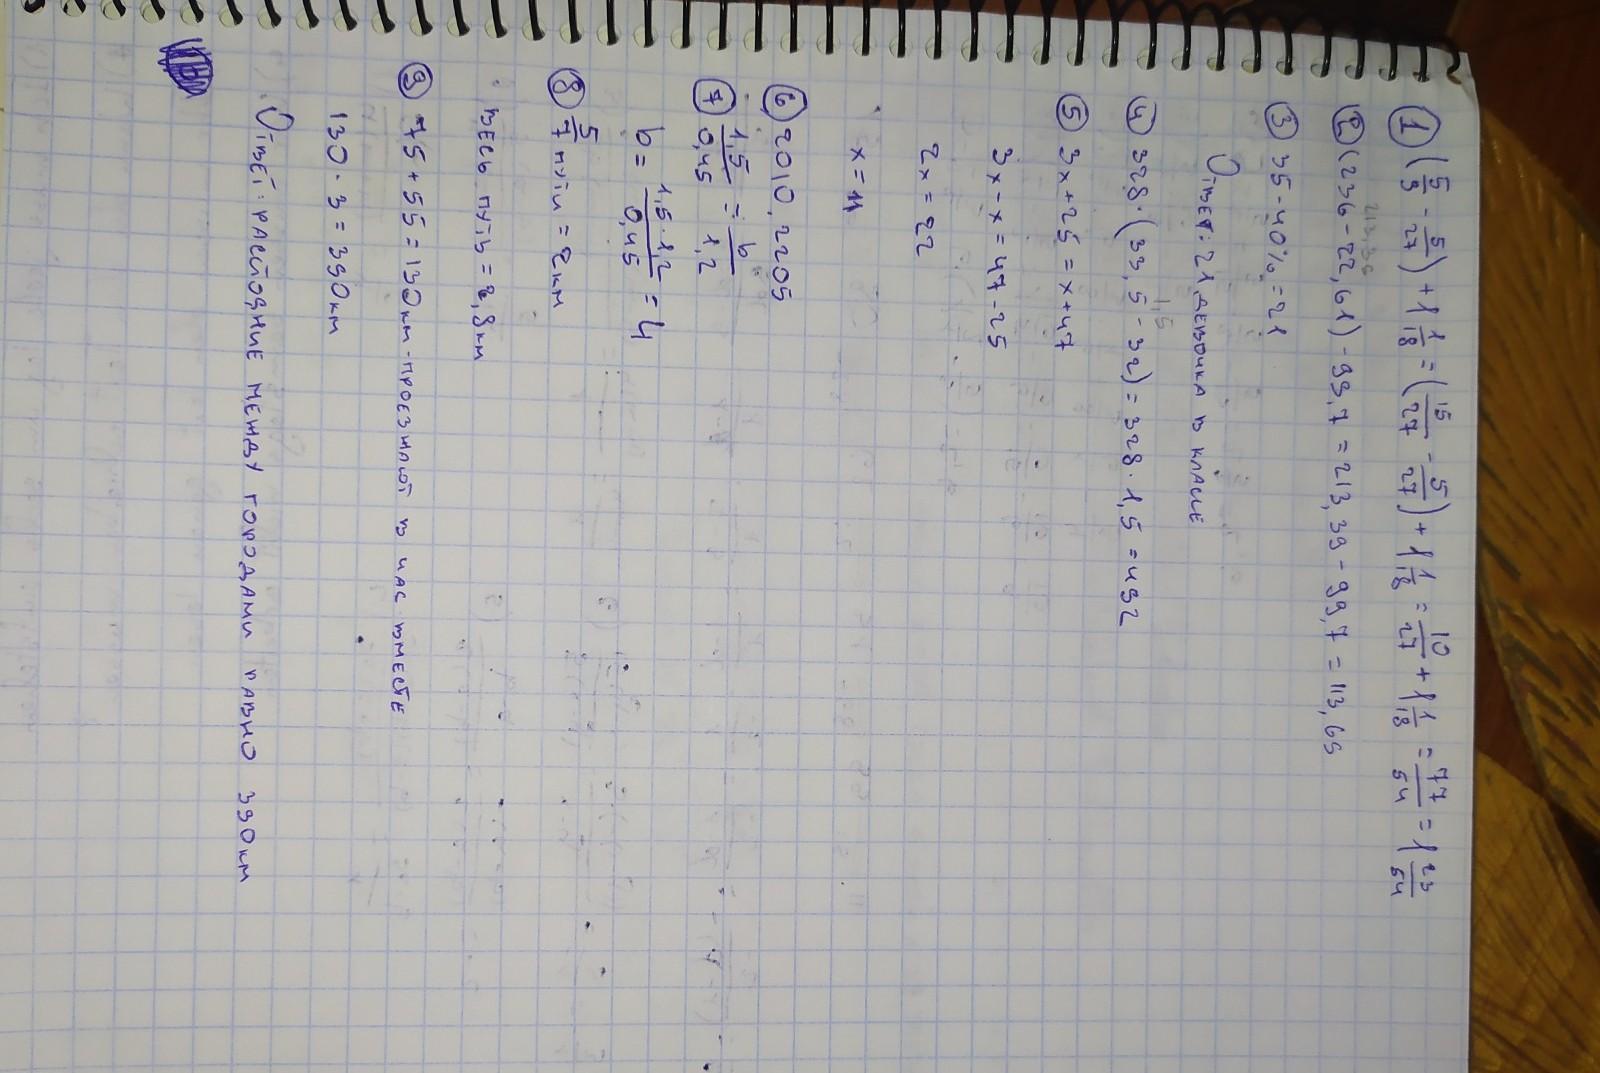 ① (5/9 - 5/27) + 1 1/18 = (15/27 - 5/27) + 1 1/18 = 10/27 + 1 1/18 = 77/54 = 1 23/54
213,39
② (236 - 22,61) - 99,7 = 213,39 - 99,7 = 113,69
③ 35 - 40% = 21
Ответ: 21 девочка в классе
1,5
④ 328 · (33,5 - 32) = 328 · 1,5 = 492
⑤ 3x + 25 = x + 47
3x - x = 47 - 25
2x = 22
x = 11
⑥ 2010, 2205
⑦ 1,5/0,45 = b/1,2
b = 1,5 · 1,2/0,45 = 4
⑧ 5/7 пути = 2км
весь путь = 2,8км
⑨ 75 + 55 = 130км - проезжают в час вместе
130 · 3 = 390км
Ответ: растояние между городами равно 390км